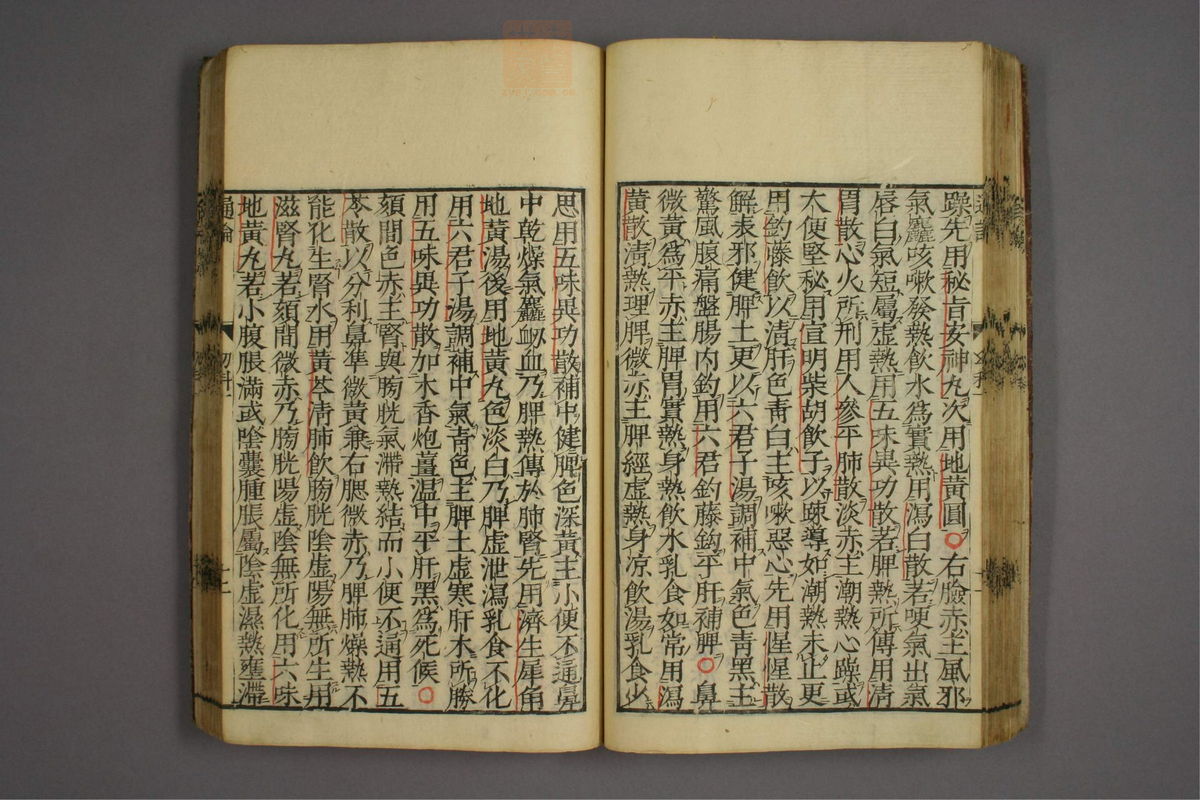 躁先用秘旨安神丸次用地黃圓〇右臉赤主風邪
氣麤咳嗽發熱飲水為實熱用瀉白散若哽氣出氣
唇白氣短屬虛熱用五味異功散若脾熱所傳用清
胃散心火所刑用人參平肺散淡赤主潮熱心躁或
大便堅秘用宣明柴胡飲子以疎導如潮熱未止更
用鈎藤飲以清肝色青白主咳嗽惡心先用惺惺散
解表邪健脾土更以六君子湯調補中氣色青黑主
驚風腹痛盤腸內鈎用六君鈎藤鈎平肝補脾〇鼻
微黃為平赤主脾胃實熱身熱飲水乳食如常用瀉
黃散清熱理脾微赤主脾經虛熱身凉飲湯乳食少
思用五味異功散補中健脾色深黃主小便不通鼻
中乾燥氣麤衂血乃脾熱傳於肺腎先用濟生犀角
地黃湯後用地黃丸色淡白乃脾虛泄瀉乳食不化
用六君子湯調補中氣青色主脾土虛寒肝木所勝
用五味異功散加木香炮薑溫中平肝黑為死候〇
頦間色赤主腎與膀胱氣滯熱結而小便不通用五
苓散以分利鼻準微黃兼右腮微赤乃脾肺燥熱不
能化生腎水用黃芩清肺飲膀胱陰虛陽無所生用
滋腎丸若頦間微赤乃膀胱陽虛陰無所化用六味
地黃丸若小腹脹滿或陰囊腫脹屬陰虛濕熱壅滯
通論